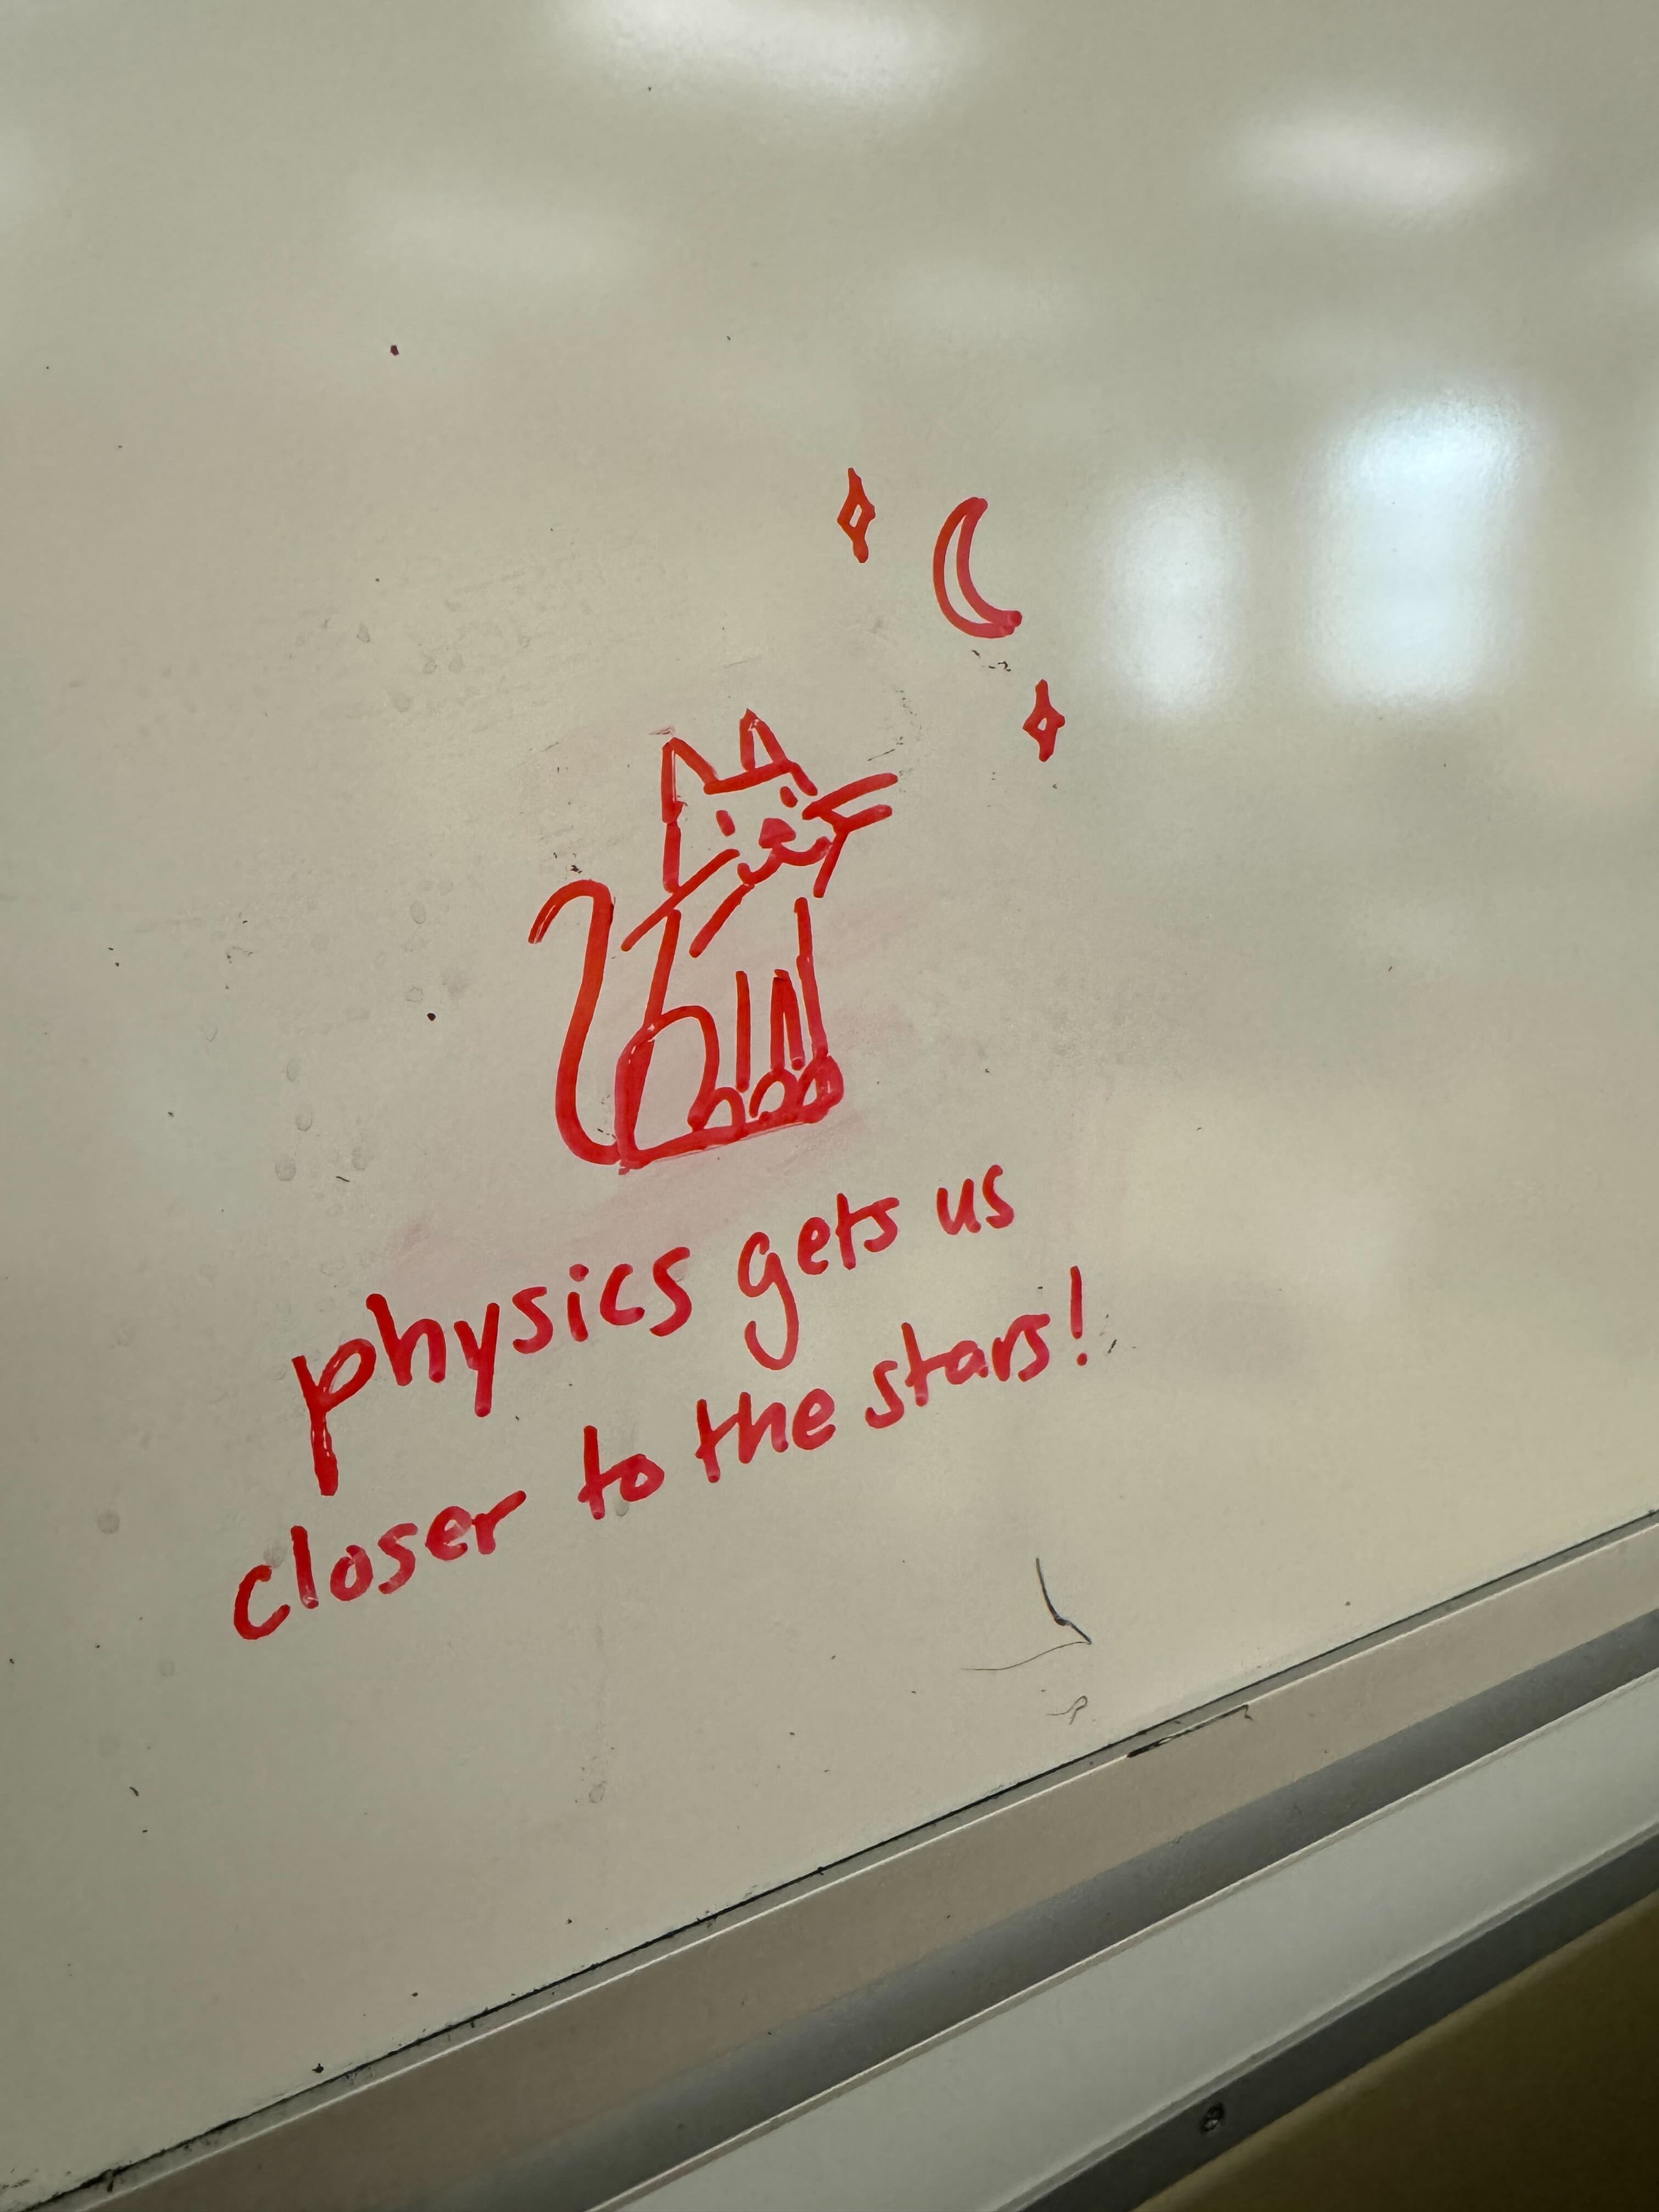 physics gets us
closer to the stars!